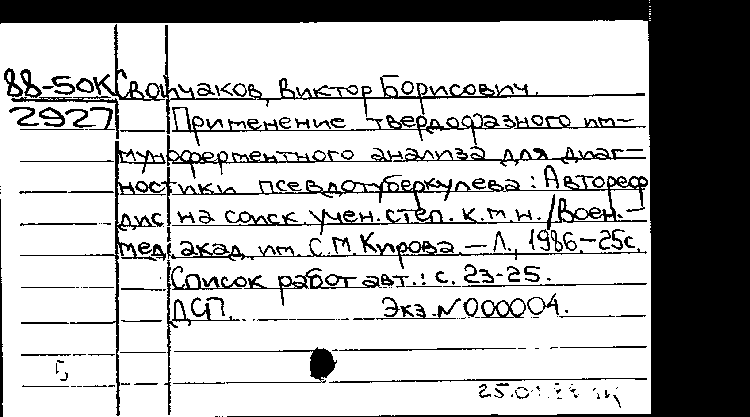 88-50К Свойчаков, Виктор Борисович.
2927 Применение твердофазного им-
муноферментного анализа для диаг-
ностики псевдотуберкулева: Автореф
дис на соиск. учен. степ. к.м.н. / Воен.-
мед. акад. им. С.М. Кирова. — Л., 1986.-25с.
Список работ авт.: с. 23-25.
ДСП. Экз. N 000004.
5